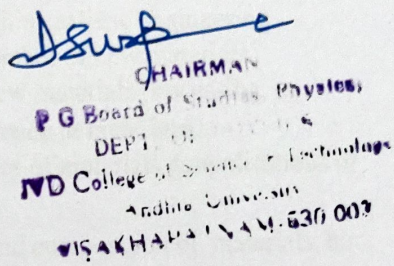 CHAIRMAN
P G Board of Studies, Physics,
DEPT. OF S
JVD College of Science & Technology
Andhra University
VISAKHAPATNAM-530 003